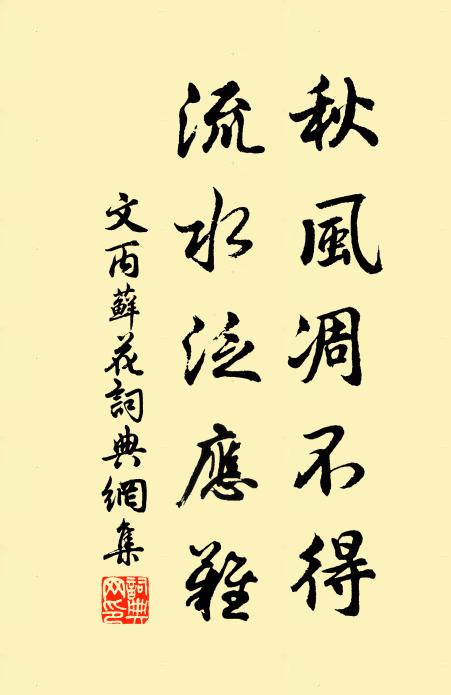 秋風凋不得
流水泛應難
文丙蘚花詞典網集
詞典網印